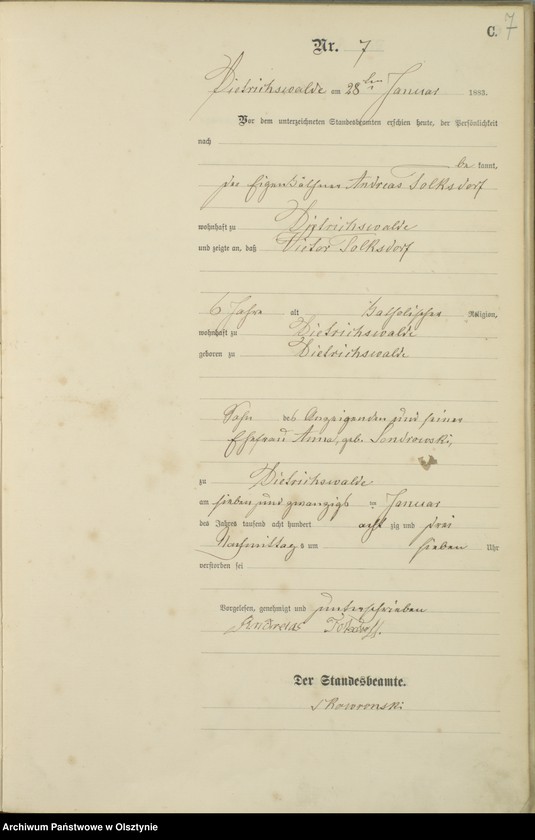 C. 7
Nr. 7
Dietrichswalde am 28ten Januar 1883.
Vor dem unterzeichneten Standesbeamten erschien heute, der Persönlichkeit
nach
be kannt,
der Eigenkäthner Andreas Tolksdorf
wohnhaft zu Dietrichswalde
und zeigte an, daß Victor Tolksdorf
6 Jahre alt katholischer Religion,
wohnhaft zu Dietrichswalde
geboren zu Dietrichswalde
Sohn des Anzeigenden und seiner
Ehefrau Anna, geb. Sendrowski,
zu Dietrichswalde
am sieben und zwanzigs ten Januar
des Jahres tausend acht hundert acht zig und drei
Nachmittag s um sieben Uhr
verstorben sei
Vorgelesen, genehmigt und unterschrieben
Andreas
Der Standesbeamte.
Skowronski
Archiwum Państwowe w Olsztynie